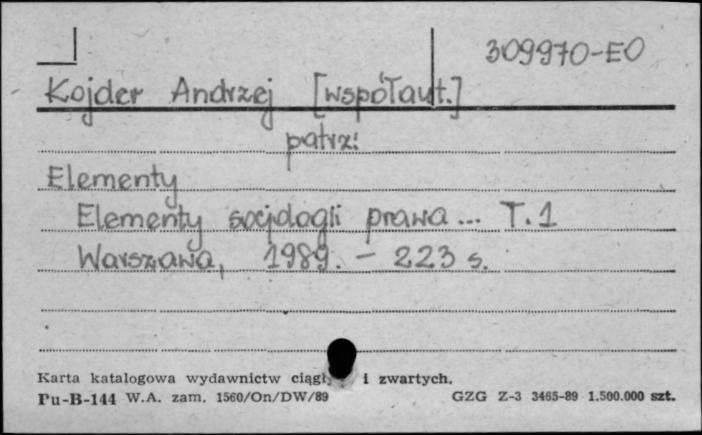 309970-EO
Kojder Andrzej [współaut.]
patrz:
Elementy
Elementy socjologii prawa... T.1
Warszawa, 1989. - 223 s.
Karta katalogowa wydawnictw i zwartych.
Pu-B-144 W.A. zam. 1560/On/DW/89 GZG Z-3 3465-89 1.500.000 szt.